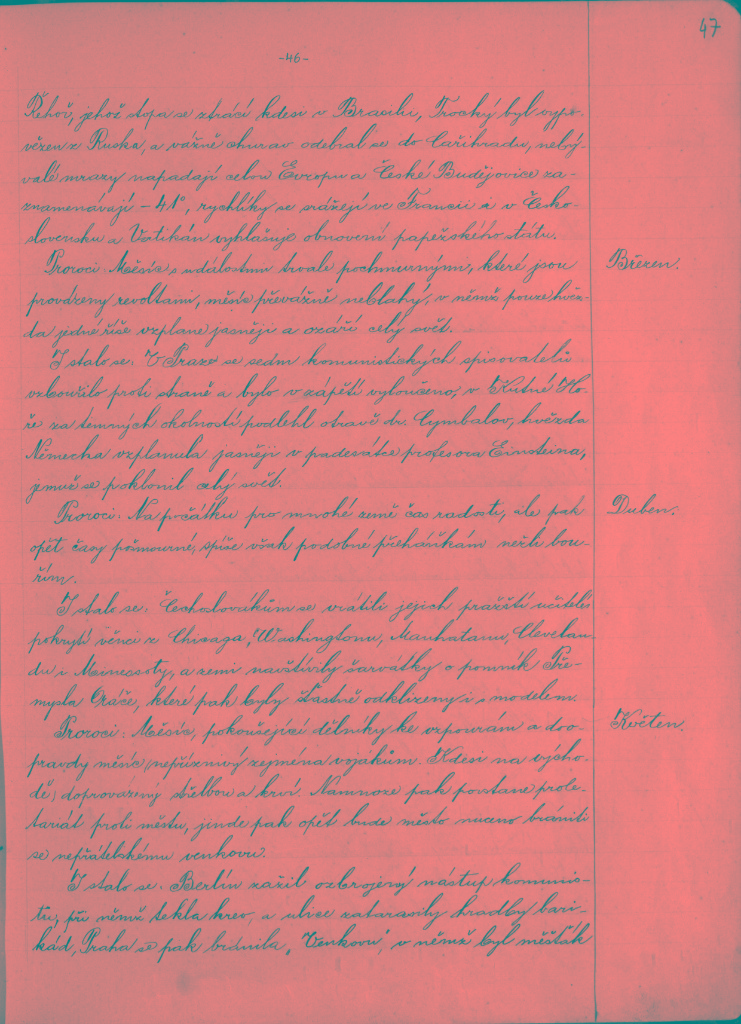 47
-46-
Řehoř, jehož stopa se ztrácí kdesi v Brasilii, Trocký byl vypo-
vězen z Ruska, a vážně churav odebral se do Cařihradu, neby-
valé mrazy napadají celou Evropu a České Budějovice za-
znamenávají -41°, rychlíky se srážejí ve Francii i v Česko-
slovensku a Vatikán vyhlašuje obnovení papežského státu.
Proroci: Měsíc s událostmi trvale pochmurnými, které jsou
Březen.
provázeny revoltami, měsíc převážně neblahý, v němž pouze hvěz-
da jedné říše vzplane jasněji a ozáří celý svět.
I stalo se: V Praze se sedm komunistických spisovatelů
vzbouřilo proti straně a bylo v zápětí vyloučeno, v Kutné Ho-
ře za temných okolností podlehl otravě dr. Cymbalov, hvězda
Německa vzplanula jasněji v padesátce profesora Einsteina,
jemuž se poklonil celý svět.
Proroci: Na počátku pro mnohé země čas radosti, ale pak
Duben.
opět časy pošmourné, spíše však podobné přeháňkám nežli bou-
řím.
I stalo se: Čechoslovákům se vrátili jejich pražští učitelé
pokrytí věnci z Chicaga, Washingtonu, Manhatanu, Clevelan-
du i Minessoty, a zemi navštívily šarvátky o pomník Pře-
mysla Oráče, které pak byly šťastně odklizeny i s modelem.
Proroci: Měsíc, pokoušející dělníky ke vzpourám a doo-
Květen.
pravdy měsíc nepříznivý zejména vojákům. Kdesi na výcho-
dě, doprovázený střelbou a krví. Namnoze pak povstane prole-
tariát proti městu, jinde pak opět bude město nuceno brániti
se nepřátelskému venkovu.
I stalo se: Berlín zažil ozbrojený nástup komunis-
tů, při němž tekla krev, a ulice zatarasily hradby bari-
kád, Praha se pak bránila „Venkovu", v němž byl měšťák